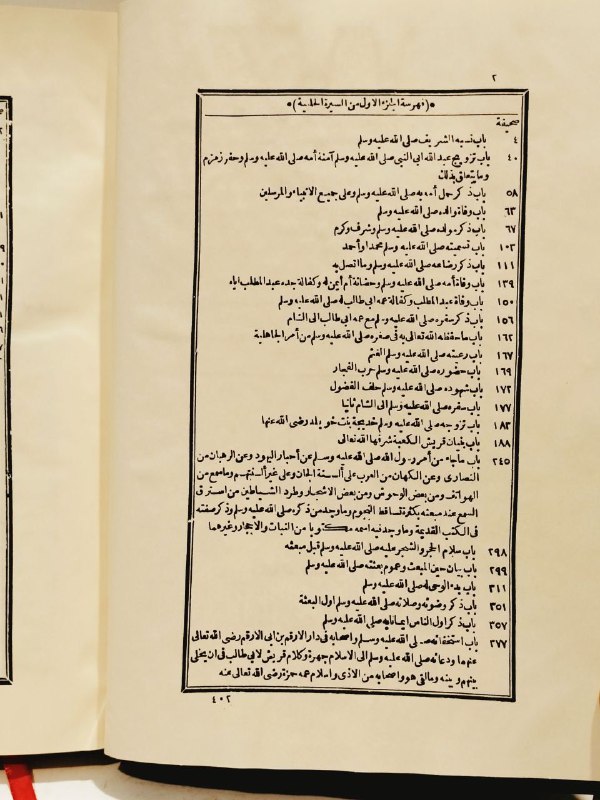 ٢
*(فهرسة الجزء الاول من السيرة الحلبية)*
صحيفة
٤ باب نسبه الشريف صلى الله عليه وسلم
٤٠ باب تزويج عبد الله ابى النبى صلى الله عليه وسلم آمنة أمه صلى الله عليه وسلم وحفر زمزم
وما يتعلق بذلك
٥٨ باب ذكر حمل أمه به صلى الله عليه وسلم وعلى جميع الانبياء والمرسلين
٦٣ باب وفاة والده صلى الله عليه وسلم
٦٧ باب ذكر مولده صلى الله عليه وسلم وشرف وكرم
١٠٣ باب تسميته صلى الله عليه وسلم محمدا وأحمد
١١١ باب ذكر رضاعه صلى الله عليه وسلم وما اتصل به
١٣٩ باب وفاة أمه صلى الله عليه وسلم وحضانة أم أيمن له وكفالة جده عبد المطلب اياه
١٥٠ باب وفاة عبد المطلب وكفالة عمه ابى طالب له صلى الله عليه وسلم
١٥٦ باب ذكر سفره صلى الله عليه وسلم مع عمه ابى طالب الى الشام
١٦٢ باب ما حفظه الله تعالى به فى صغره صلى الله عليه وسلم من أمر الجاهلية
١٦٧ باب رعيته صلى الله عليه وسلم الغنم
١٦٩ باب حضوره صلى الله عليه وسلم حرب الفجار
١٧٢ باب شهوده صلى الله عليه وسلم حلف الفضول
١٧٧ باب سفره صلى الله عليه وسلم الى الشام ثانيا
١٨٣ باب تزوجه صلى الله عليه وسلم خديجة بنت خويلد رضى الله عنها
١٨٨ باب بنيان قريش الكعبة شرفها الله تعالى
٢٤٥ باب ما جاء من أمر رسول الله صلى الله عليه وسلم عن أحبار اليهود وعن الرهبان من
النصارى وعن الكهان من العرب على ألسنة الجان وعلى غير ألسنتهم وما سمع من
الهواتف ومن بعض الوحوش ومن بعض الاشجار وطرد الشياطين من استرق
السمع عند مبعثه بكثرة تساقط النجوم وما وجد من ذكره صلى الله عليه وسلم وذكر صفته
فى الكتب القديمة وما وجد فيه اسمه مكتوبا من النبات والاحجار وغيرهما
٢٩٨ باب سلام الحجر والشجر عليه صلى الله عليه وسلم قبل مبعثه
٢٩٩ باب بيان حين المبعث وعموم بعثته صلى الله عليه وسلم
٣١١ باب بدء الوحى له صلى الله عليه وسلم
٣٥١ باب ذكر وضوئه وصلاته صلى الله عليه وسلم اول البعثة
٣٥٧ باب ذكر اول الناس ايمانا به صلى الله عليه وسلم
٢٧٧ باب استخفائه صلى الله عليه وسلم واصحابه فى دار الارقم بن ابى الارقم رضى الله تعالى
عنهما ودعائه صلى الله عليه وسلم الى الاسلام جهرة وكلام قريش لابى طالب فى ان يخلى
بينهم وبينه وما لقى هو واصحابه من الاذى واسلام عمه حمزة رضى الله تعالى عنه
٤٠٢